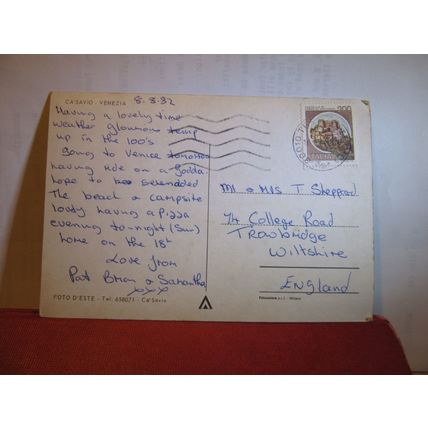 CA'SAVIO - VENEZIA
8-8-82
Having a lovely time
weather glourious temp
up in the 100's
Going to Venice tomorrow
having ride on a godda
hope to be serendded
The beach & campsite
lovly having a pizza
evening to-night (Sun)
home on the 18th
Love from
Pat Brian & Samantha
xxx
FOTO D'ESTE - Tel. 658071 - Ca'Savio
200
Mr & Mrs T Sheppard
74 College Road
Trowbridge
Wiltshire
ENGLAND